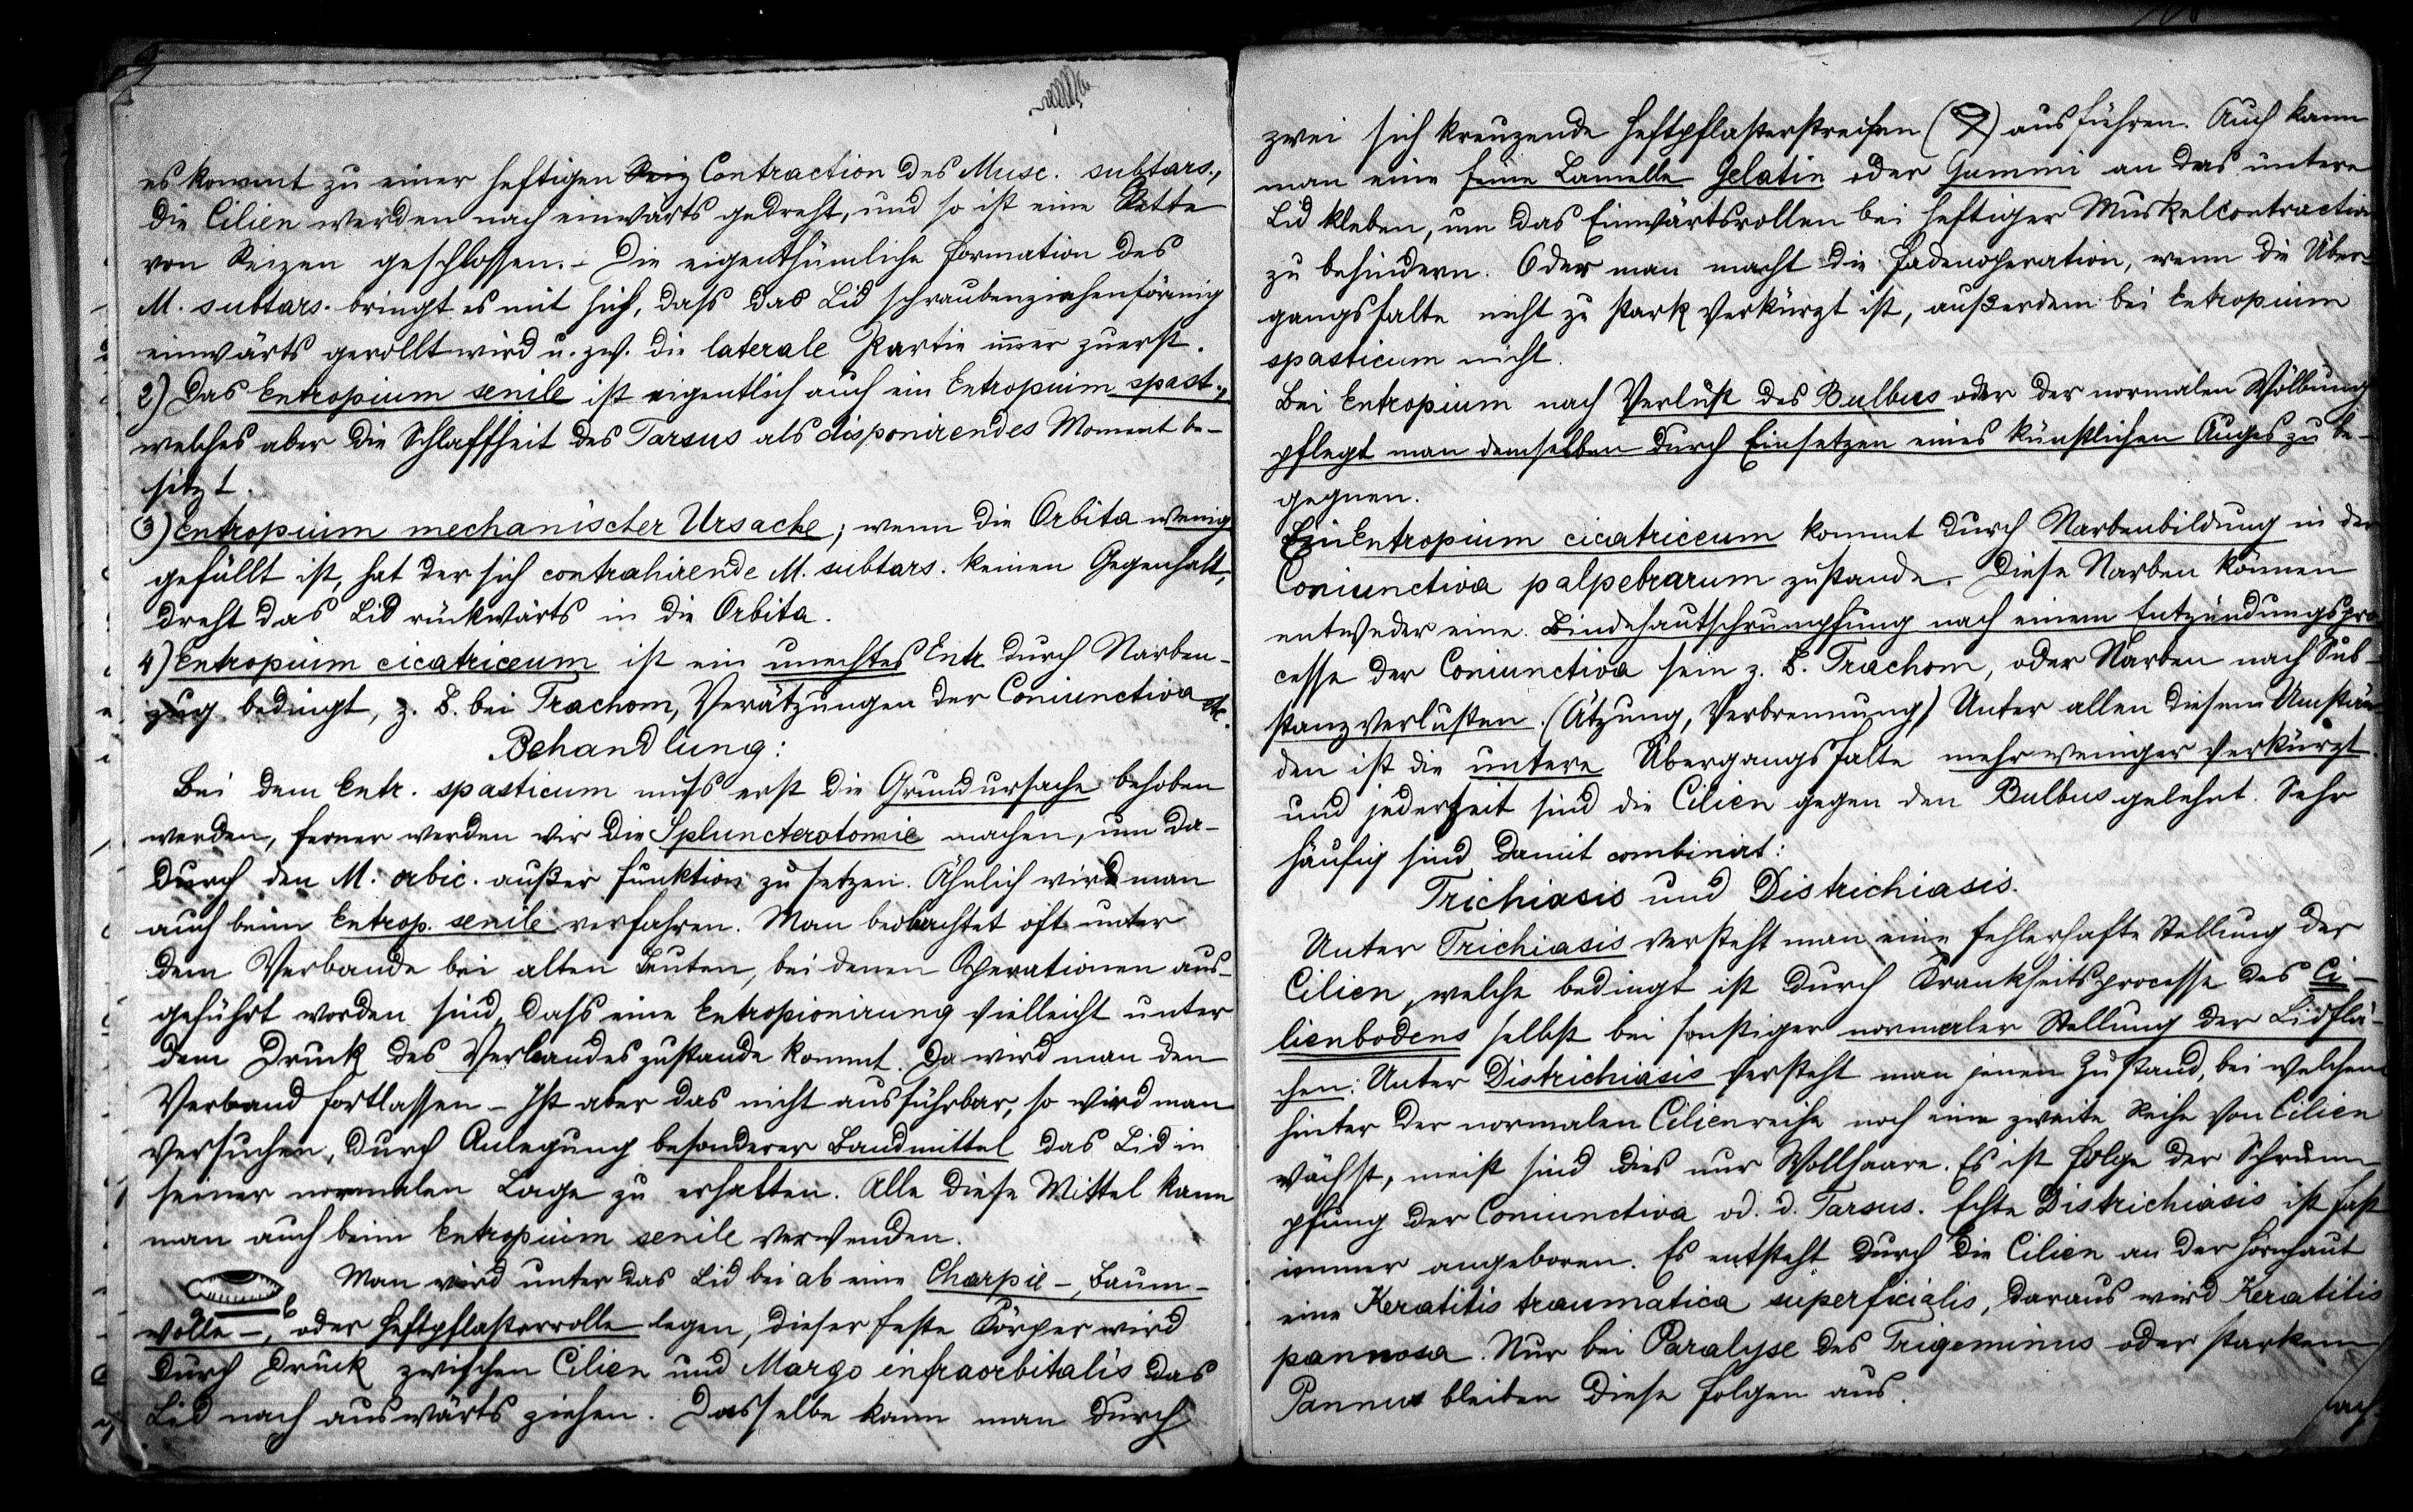 es kommt zu einer heftigen Reiz Contraction des Musc. subtars.,
die Cilien werden nach einwärts gedreht, und so ist eine Kette
von Reizen geschlossen. – Die eigenthümliche Formation des
M. subtars. bringt es mit sich, dass das Lid schraubenziehenförmig
einwärts gerollt wird u. zw. die laterale Partie immer zuerst.
2) Das Entropium senile ist eigentlich auch ein Entropium spast.,
welches aber die Schlaffheit des Tarsus als disponirendes Moment be-
sitzt.
3) Entropium mechanischer Ursache; wenn die Orbita wenig
gefüllt ist, hat der sich contrahirende M. subtars. keinen Gegenhalt,
dreht das Lid rückwärts in die Orbita.
4) Entropium cicatriceum ist ein unechtes Entr. durch Narben-
zug bedingt, z. B. bei Trachom, Verätzungen der Coniunctiva etc.
Behandlung:
Bei dem Entr. spasticum muss erst die Grundursache behoben
werden, ferner werden wir die Spluncterotomie machen, um da-
durch den M. orbic. außer Funktion zu setzen. Ähnlich wird man
auch beim Entrop. senile verfahren. Man beobachtet oft unter
dem Verbande bei alten Leuten, bei denen Operationen aus-
geführt worden sind, dass eine Entropionirung vielleicht unter
dem Druck des Verbandes zustande kommt. Da wird man den
Verband fortlassen – Ist aber das nicht ausführbar, so wird man
versuchen, durch Anlegung besonderer Bandmittel das Lid in
seiner normalen Lage zu erhalten. Alle diese Mittel kann
man auch beim Entropium senile verwenden.
Man wird unter das Lid bei ab eine Charpie-, Baum-
wolle-, oder Heftpflasterrolle legen, dieser feste Körper wird
durch Druck zwischen Cilien und Margo infraorbitalis das
Lid nach auswärts ziehen. Dasselbe kann man durch
zwei sich kreuzende Heftpflasterstreifen ( ) ausführen. Auch kann
man eine feine Lamelle Gelatin oder Gummi an das untere
Lid kleben, um das Einwärtsrollen bei heftiger Muskelcontraction
zu behindern. Oder man macht die Fadenoperation, wenn die Über-
gangsfalte nicht zu stark verkürzt ist, außerdem bei Entropium
spasticum nicht.
Bei Entropium nach Verlust des Bulbus oder der normalen Wölbung
pflegt man demselben durch Einsetzen eines künstlichen Auges zu be-
gegnen.
Ein Entropium cicatriceum kommt durch Narbenbildung in der
Coniunctiva palpebrarum zustande. Diese Narben können
entweder eine Bindehautschrumpfung nach einem Entzündungspro-
cesse der Coniunctiva sein z. B. Trachom, oder Narben nach Sub-
stanzverlusten. (Ätzung, Verbrennung) Unter allen diesen Umstän-
den ist die untere Übergangsfalte mehr weniger verkürzt
und jederzeit sind die Cilien gegen den Bulbus gelehnt. Sehr
häufig sind damit combinirt:
Trichiasis und Districhiasis.
Unter Trichiasis versteht man eine fehlerhafte Stellung der
Cilien, welche bedingt ist durch Krankheitsprocesse des Ci-
lienbodens selbst bei sonstiger normaler Stellung der Lidflä-
chen. Unter Districhiasis versteht man jenen Zustand, bei welchem
hinter der normalen Cilienreihe noch eine zweite Reihe von Cilien
wächst, meist sind dies nur Wollhaare. Es ist Folge der Schrum-
pfung der Coniunctiva od. d. Tarsus. Echte Districhiasis ist fast
immer angeboren. Es entsteht durch die Cilien an der Hornhaut
eine Keratitis traumatica superficialis, daraus wird Keratitis
pannosa. Nur bei Paralyse des Trigeminus oder starkem
Pannus bleiben diese Folgen aus.